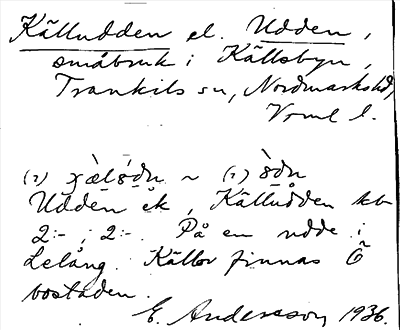 Källudden el. Udden,
småbruk i Källsbyn,
Trankils sn, Nordmarks hd,
Vrml l.
(2) ~ (1)
Udden ek, Källudden kb
2:-; 2:-. På en udde i
Lelång. Källor finnas Ö
bostaden.
E. Andersson 1936.